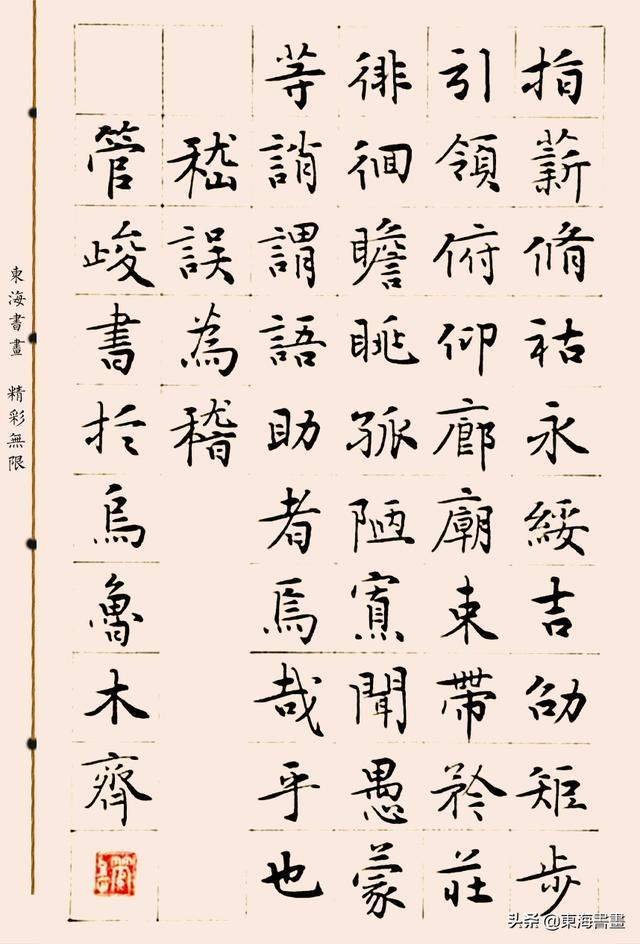 指薪脩祜永綏吉劭矩步
引領俯仰廊廟束帶矜莊
徘徊瞻眺孤陋寡聞愚蒙
等誚謂語助者焉哉乎也
嵇誤為稽
管峻書於烏魯木齊
東海書畫 精彩無限
头条 @東海書畫